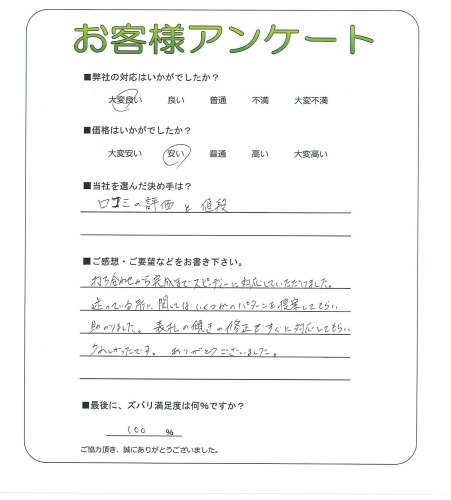 お客様アンケート
■弊社の対応はいかがでしたか？
大変良い 良い 普通 不満 大変不満
■価格はいかがでしたか？
大変安い 安い 普通 高い 大変高い
■当社を選んだ決め手は？
口コミの評価 と 値段
■ご感想・ご要望などをお書き下さい。
打ち合わせから完成までスピーディーに対応していただけました。
迷っている所に関してはいくつかのパターンを提案してもらい
助かりました。表札の傾きの修正もすぐに対応してもらい
うれしかったです。ありがとうございました。
■最後に、ズバリ満足度は何％ですか？
100 %
ご協力頂き、誠にありがとうございました。